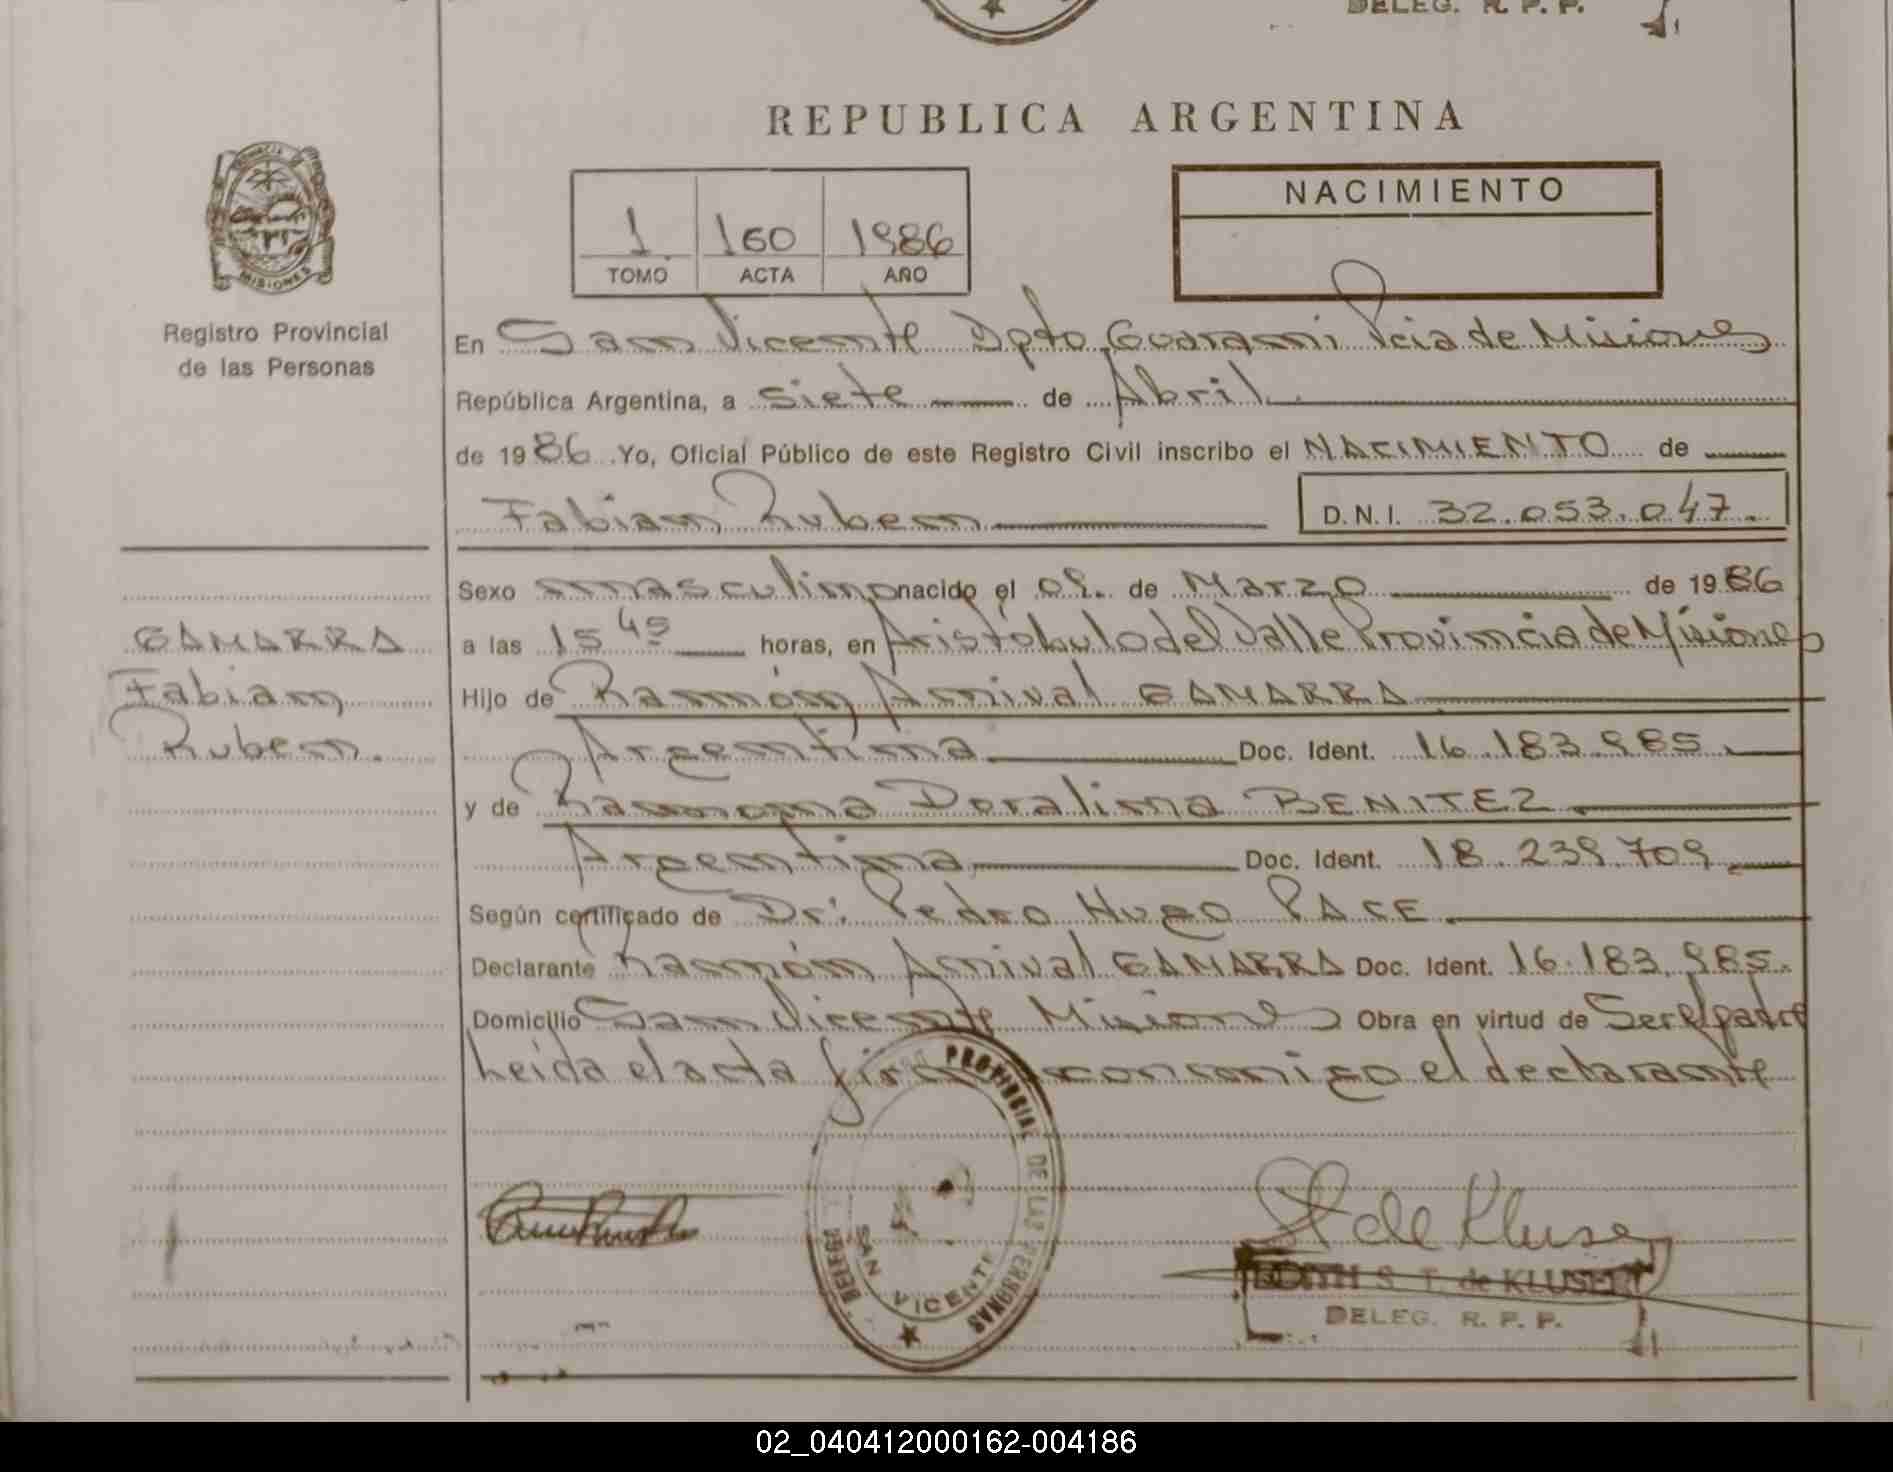 DELEG. R. P. P.
REPUBLICA ARGENTINA
PROVINCIA DE
MISIONES
1 160 1986
TOMO ACTA AÑO
NACIMIENTO
Registro Provincial
de las Personas
En San Vicente Dpto Guarani Pcia de Misiones
República Argentina, a siete de Abril
de 1986 Yo, Oficial Público de este Registro Civil inscribo el NACIMIENTO de
Fabian Ruben D.N.I. 32.053.047.
Sexo masculino nacido el 09. de Marzo de 1986
GAMARRA
Fabian
Ruben.
a las 15 45 horas, en Aristóbulo del Valle Provincia de Misiones
Hijo de Ramón Anival GAMARRA
Argentina Doc. Ident. 16.183.985.
y de Ramona Doralina BENITEZ
Argentina Doc. Ident. 18.239.709
Según certificado de Dr. Pedro Hugo PACE.
Declarante Ramón Anival GAMARRA Doc. Ident. 16.183.985.
Domicilio San Vicente Misiones Obra en virtud de Ser el padre
Leída el acta firma conmigo el declarante
PROVINCIAL DE LAS PERSONAS
SAN VICENTE
de Kluser
EDITH S. T. de KLUSER
DELEG. R. P. P.
02_040412000162-004186